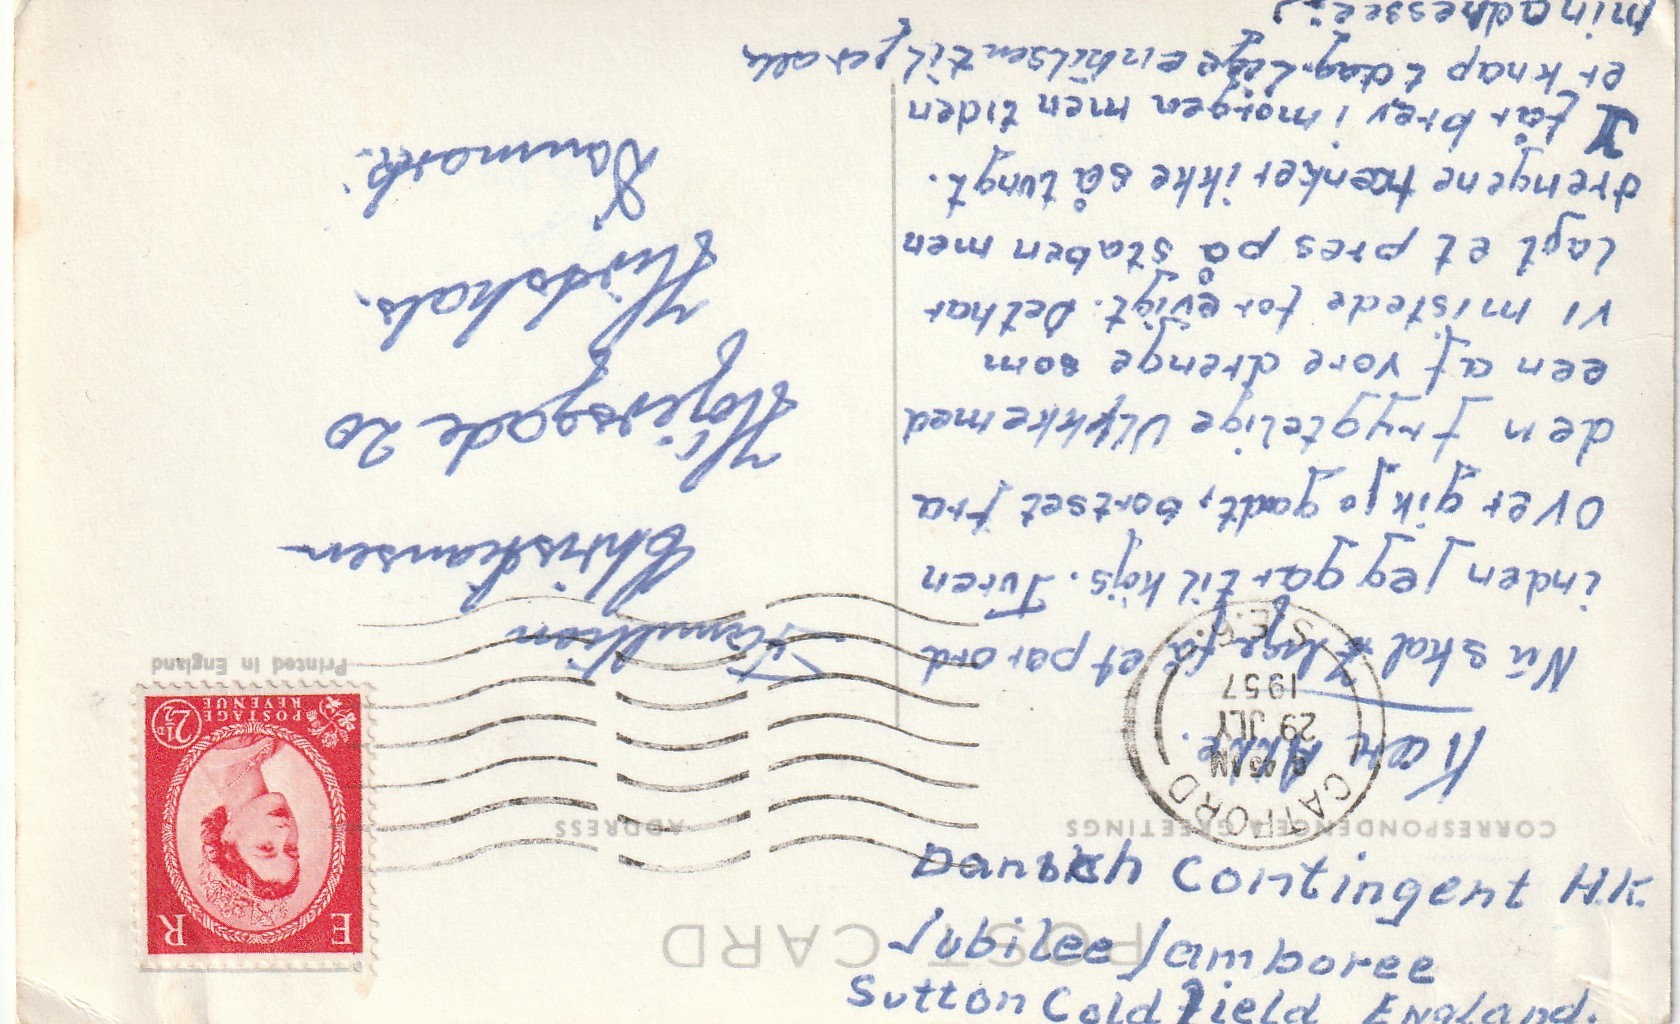 POST CARD
CORRESPONDENCE & GREETINGS
ADDRESS
Kær
Nu skal I lige få et par ord
inden jeg går til køjs. Turen
over gik jo godt, bortset fra
den frygtelige ulykke med
een af vore drenge som
vi mistede for evigt. Det har
lagt et pres på staben men
drengene tænker ikke så tungt.
I får brev i morgen men tiden
er knap i dag. Lige en hilsen til jer alle
min adresse:)
Danish Contingent H.K.
Jubilee Jamboree
Sutton Coldfield England.
CATFORD
AM
29 JLY
1957
S.E.6.
E R
POSTAGE
REVENUE
2½D
Printed in England
Familien
Christiansen
Højersgade 20
Hirtshals.
Danmark.